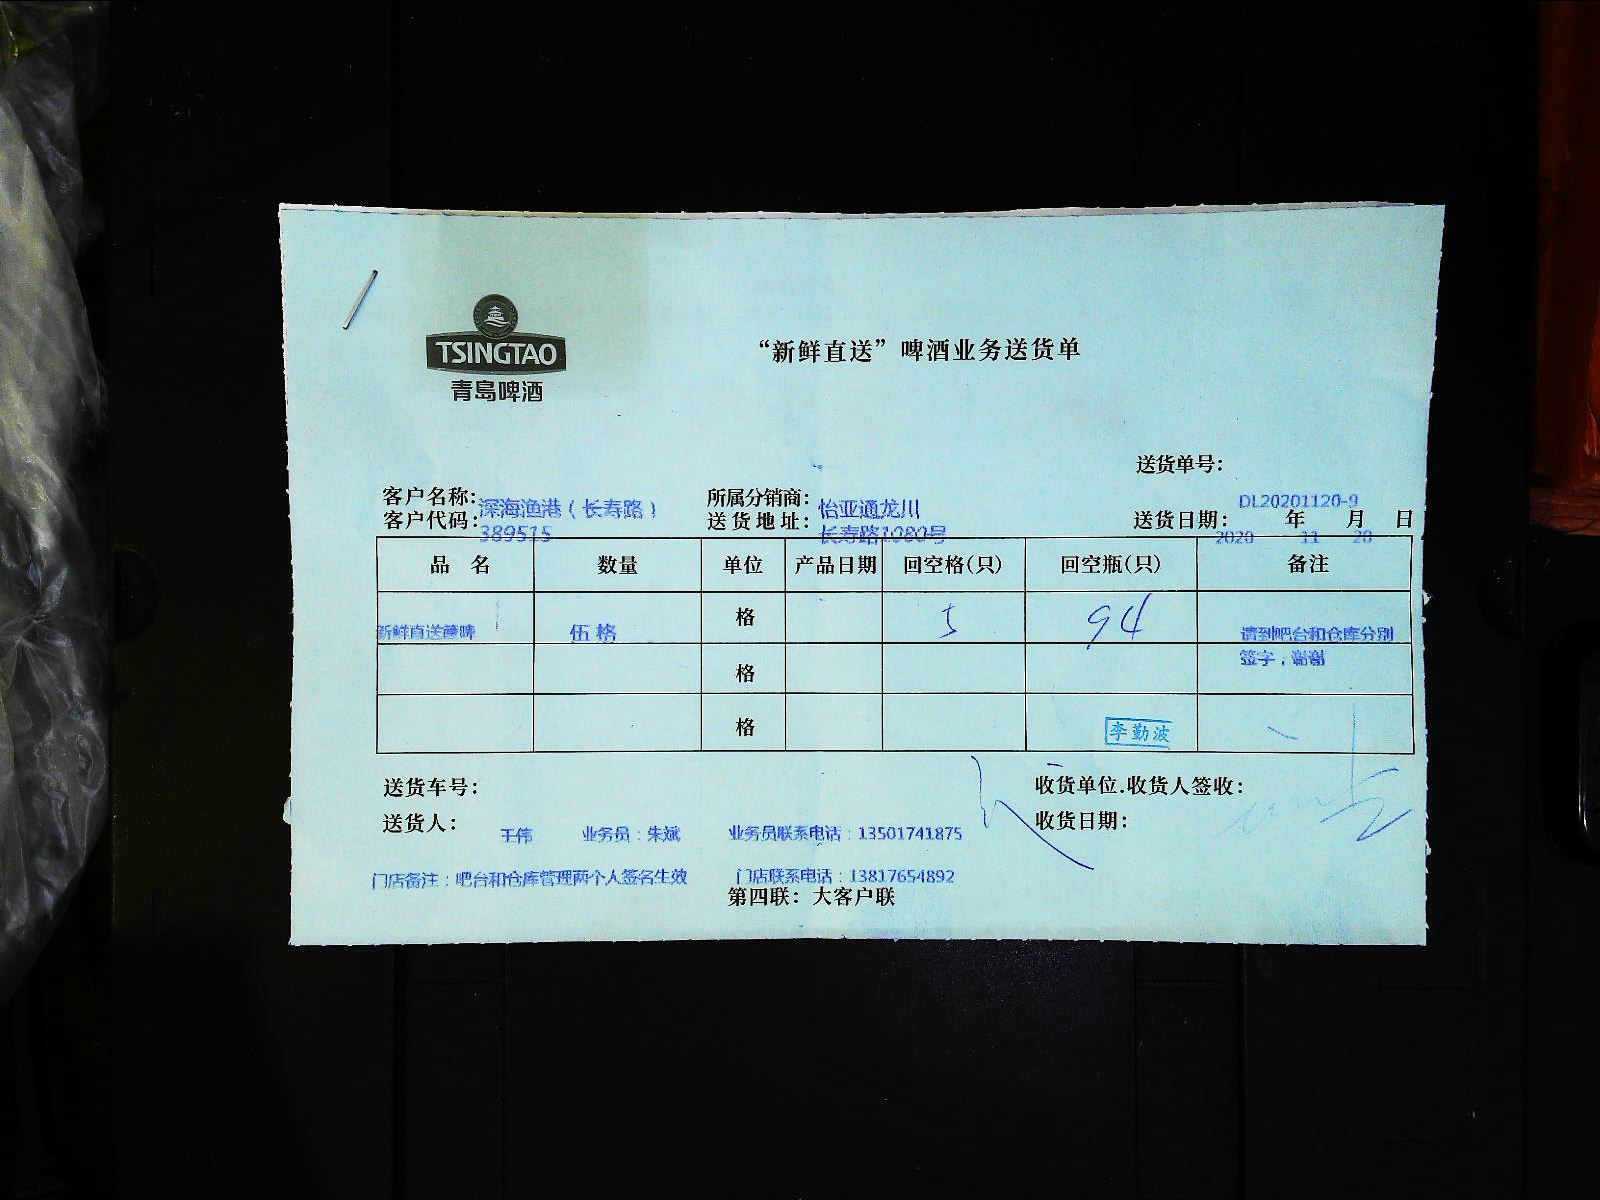 TSINGTAO
青岛啤酒
“新鲜直送”啤酒业务送货单
送货单号:
DL20201120-9
客户名称: 深海渔港（长寿路） 所属分销商: 怡亚通龙川
客户代码: 389515 送货地址: 长寿路1080号 送货日期: 2020 年 11 月 20 日
品名 数量 单位 产品日期 回空格(只) 回空瓶(只) 备注
新鲜直送篓啤 伍格 格 5 94 请到吧台和仓库分别
签字，谢谢
格
格 李勤波
送货车号: 收货单位.收货人签收:
送货人: 王伟 业务员：朱斌 业务员联系电话：13501741875 收货日期:
门店备注：吧台和仓库管理两个人签名生效 门店联系电话：13817654892
第四联：大客户联